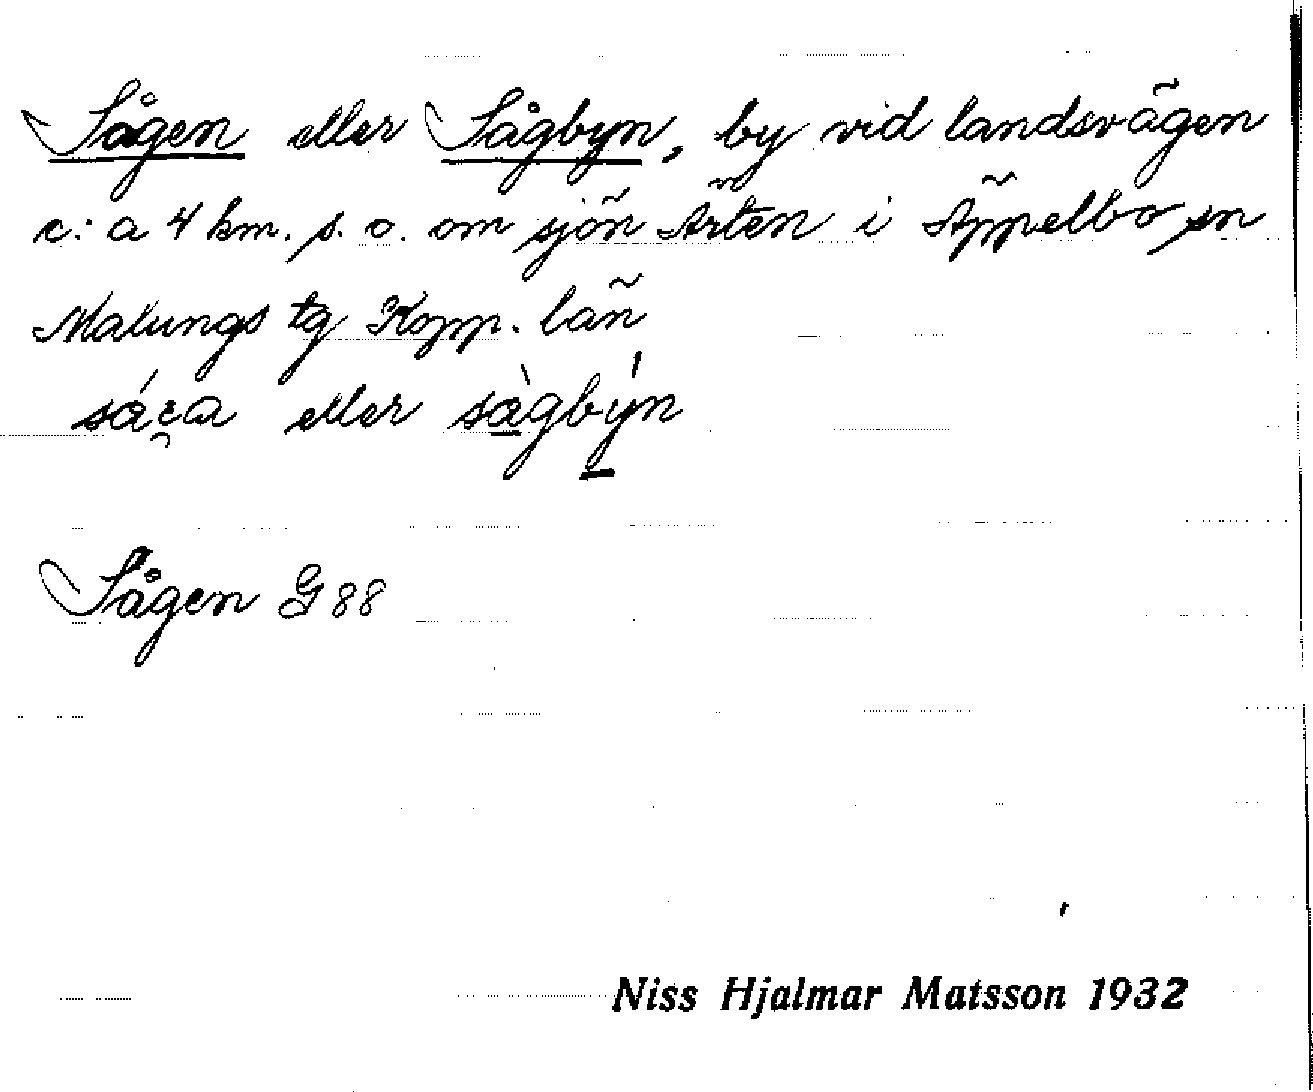 Sågen eller Sågbyn, by vid landsvägen
c:a 4 km. s. o. om sjön Ärten i Äppelbo sn
Malungs tg Kopp. län
eller sàgbýn
Sågen G 88
Niss Hjalmar Matsson 1932